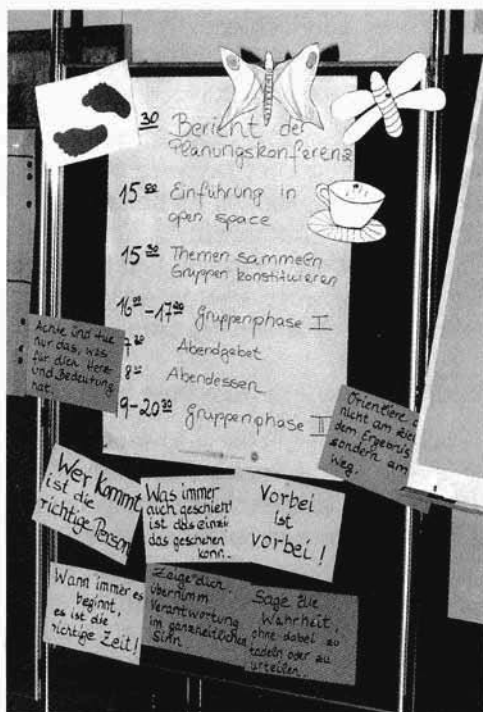 30 Bericht der
Planungskonferenz
15 00 Einführung in
open space
15 30 Themen sammeln
Gruppen konstituieren
16 00 - 17 20 Gruppenphase I
7 30 Abendgebet
8 Abendessen
9-20 30 Gruppenphase II
Achte und tue
nur das, was
für dich Herz
und Bedeutung
hat.
Orientiere
nicht am
dem Ergebnis
sondern am
Weg.
Wer kommt
ist die
richtige Person
Was immer
auch geschieht
ist das einzi
das geschehen
kann.
Vorbei
ist
vorbei!
Wann immer es
beginnt,
es ist die
richtige Zeit!
Zeige dich,
übernimm
Verantwortung
im ganzheitlichen
Sinn
Sage die
Wahrheit,
ohne dabei zu
tadeln oder zu
urteilen.